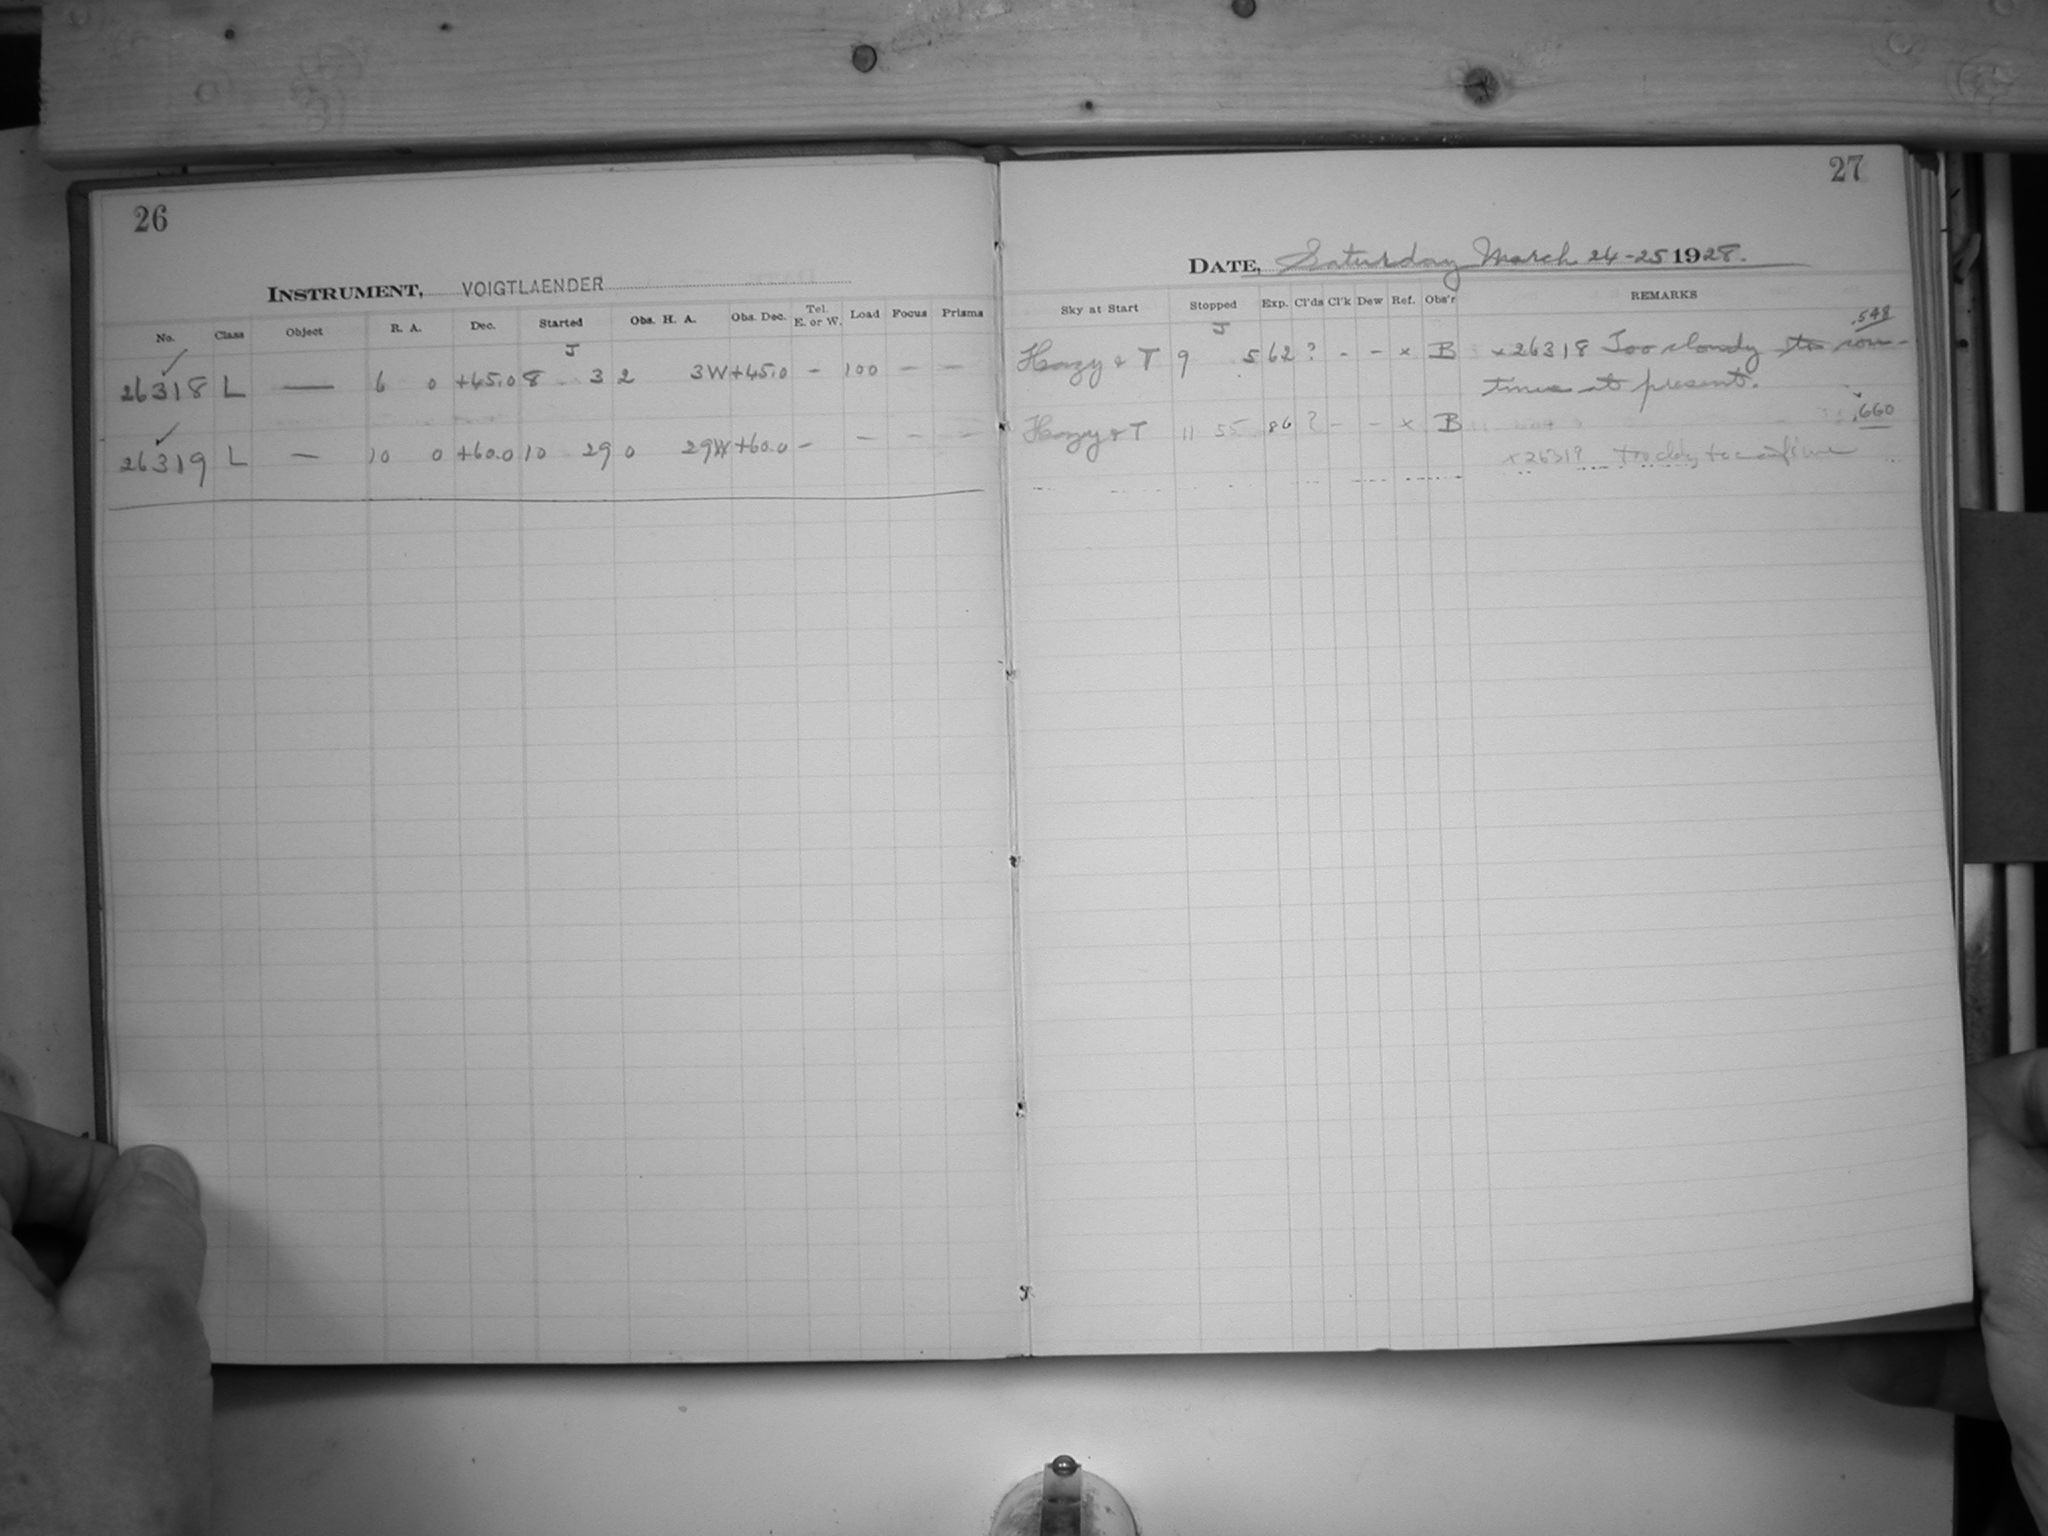 26
INSTRUMENT, VOIGTLAENDER
No. Class Object R. A. Dec. Started Obs. H. A. Obs. Dec. Tel. E. or W. Load Focus Prisms
J
26318 L — 6 0 +45.0 8 3 2 3W +45.0 - 100 — —
26319 L — 10 0 +60.0 10 29 0 29W +60.0 - — — —
27
DATE, Saturday March 24-25 1928.
Sky at Start Stopped Exp. Cl'ds Cl'k Dew Ref. Obs'r REMARKS
J
.548
Hazy & T 9 5 62 ? - - x B x 26318 Too cloudy to con-
tinue at present.
.660
Hazy & T 11 55 86 ? - - x B
x 26319 too cldy to continue